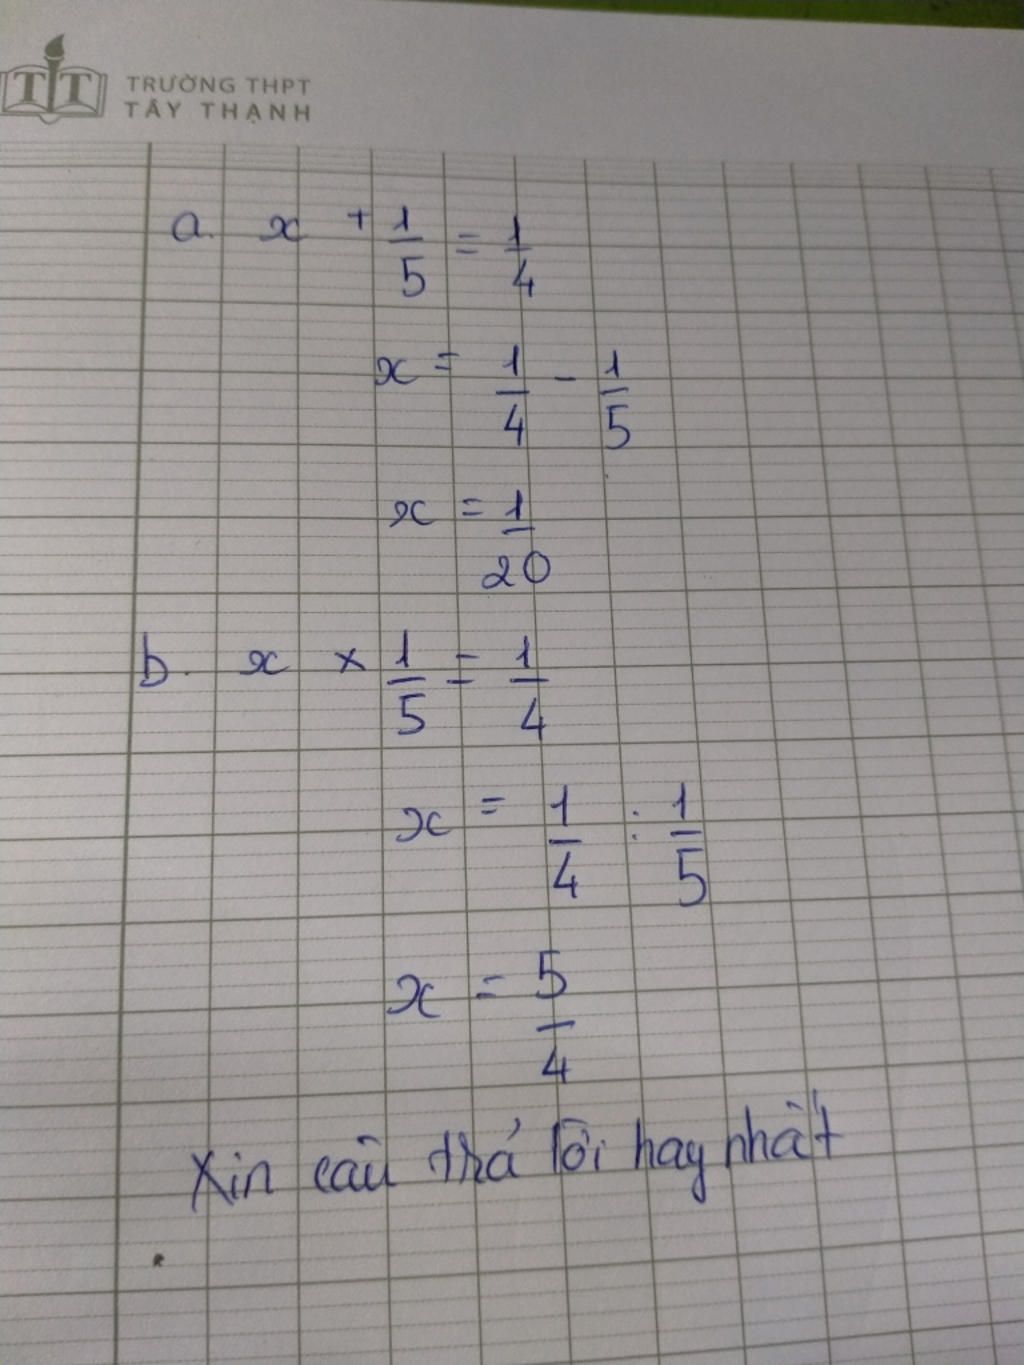 TRƯỜNG THPT
TÂY THẠNH
a. x + 1/5 = 1/4
x = 1/4 - 1/5
x = 1/20
b. x × 1/5 = 1/4
x = 1/4 : 1/5
x = 5/4
Xin câu trả lời hay nhất